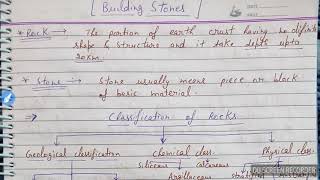 [ Building Stones ]
* Rock → The portion of earth crust having no definite
shape & structure and it take depth upto
20km.
* Stone → Stone usually means piece or block
of basic material.
⇒ Classification of Rocks
Geological classification Chemical class. Physical class.
Siliceous calcareous
Argillaceous
DU SCREEN RECORDER